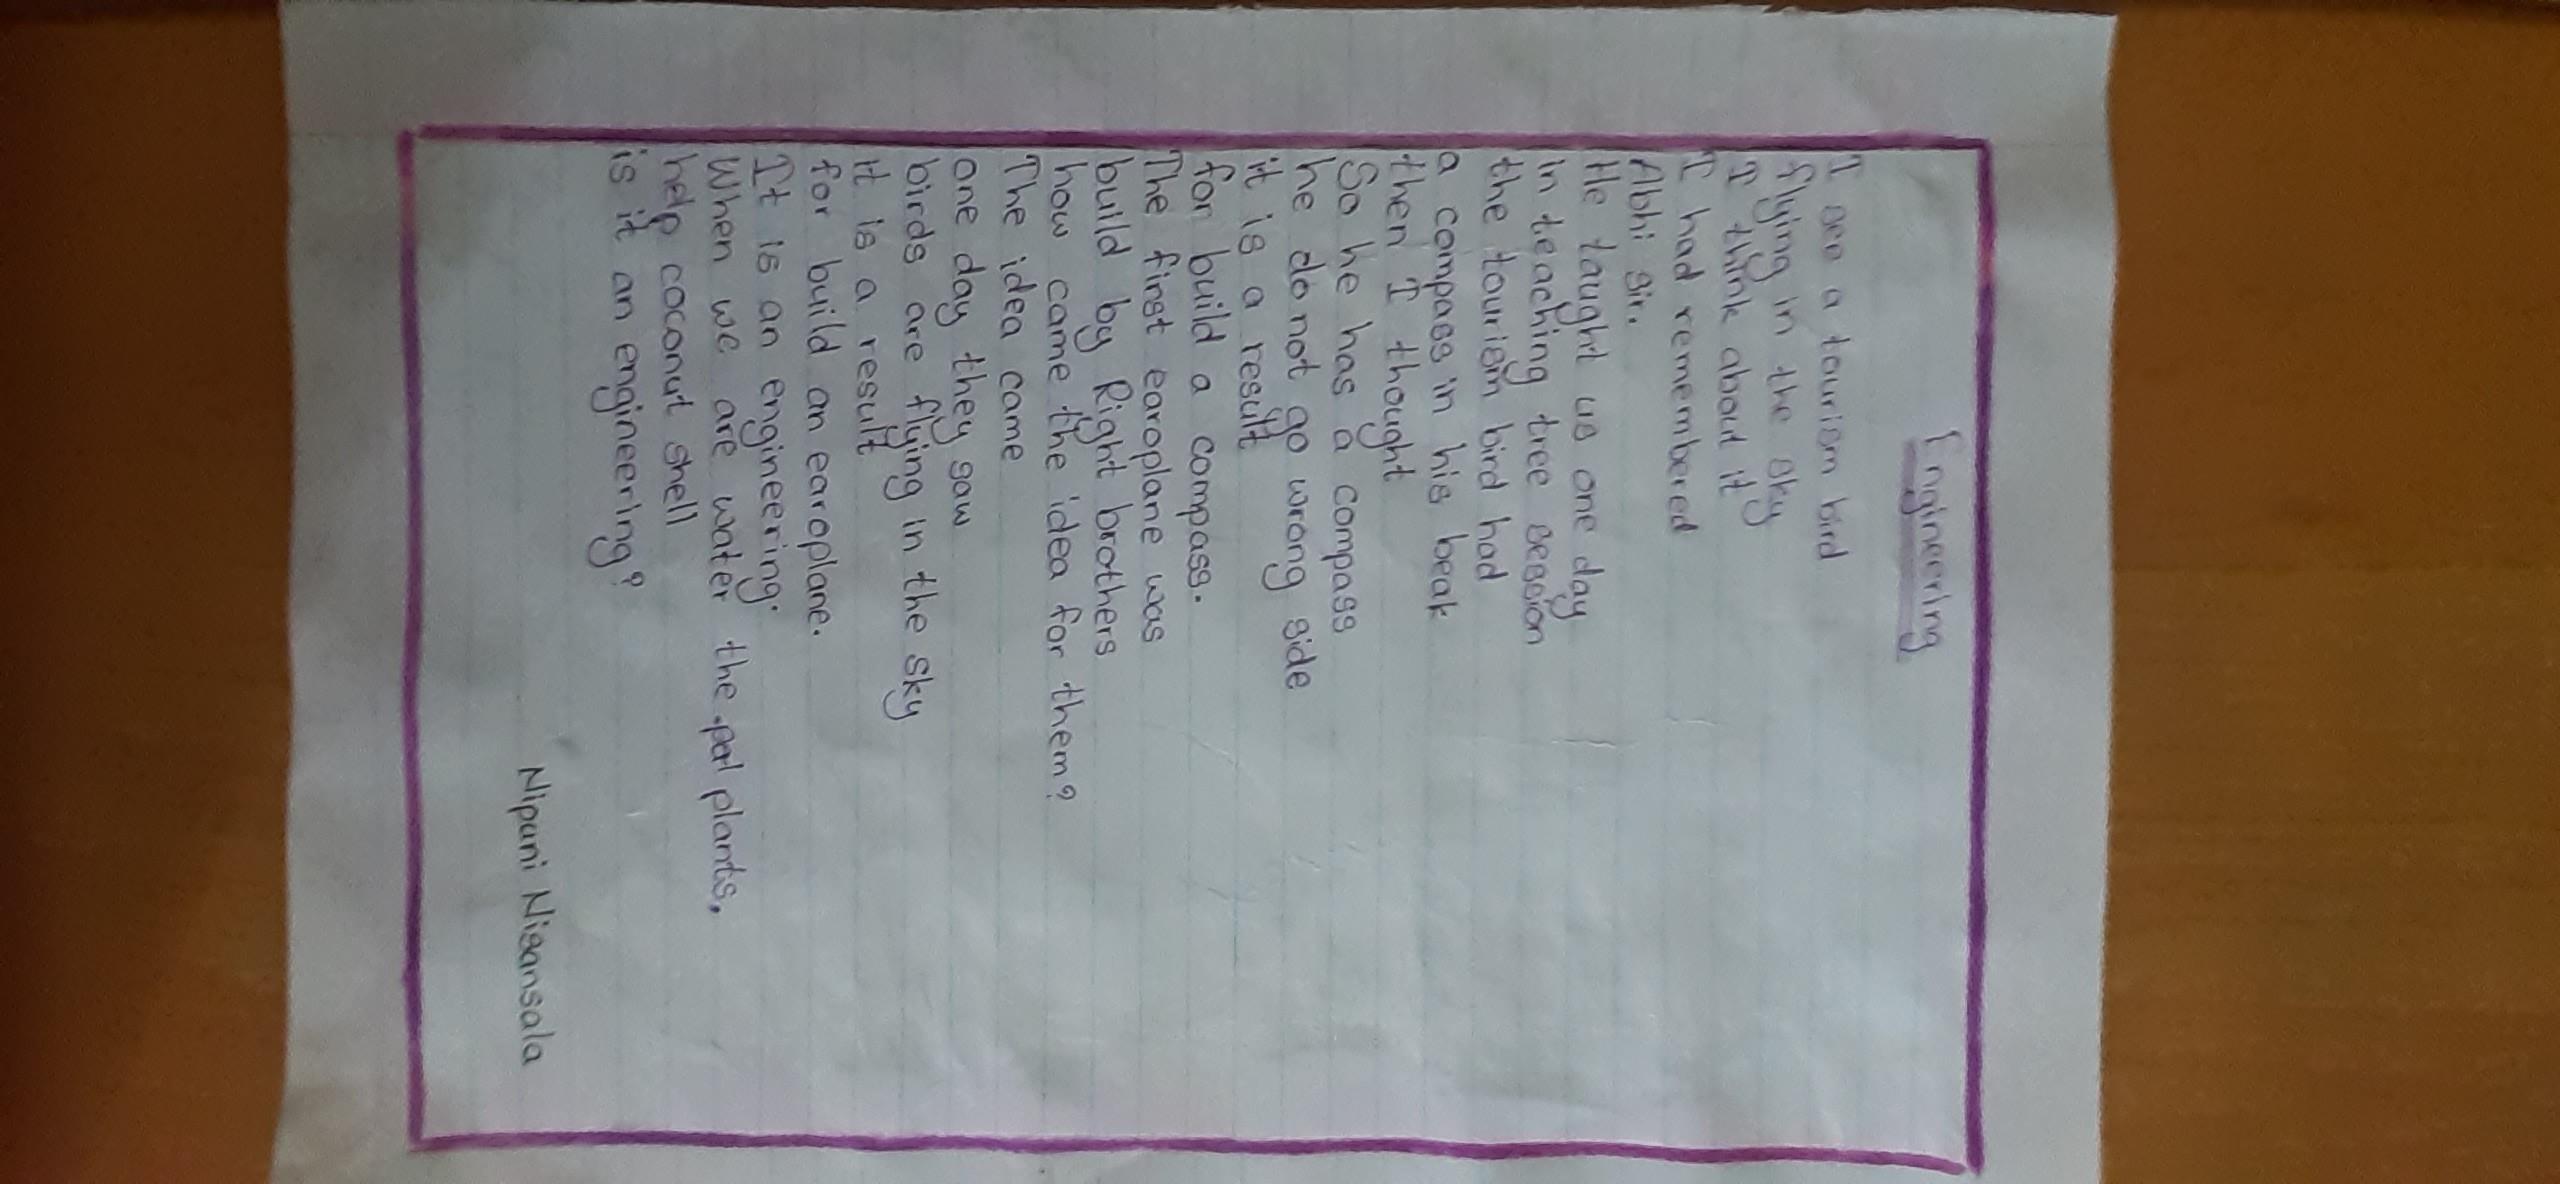 Engineering
I see a tourism bird
flying in the sky
I think about it
I had remembered
Abhi sir.
He taught us one day
in teaching tree session
the tourism bird had
a compass in his beak
then I thought
So he has a compass
he do not go wrong side
it is a result
for build a compass.
The first earoplane was
build by Right brothers
how came the idea for them?
The idea came
one day they saw
birds are flying in the sky
it is a result
for build an earoplane.
It is an engineering.
When we are water the plants,
help coconut shell
is it an engineering?
Nipuni Nisansala